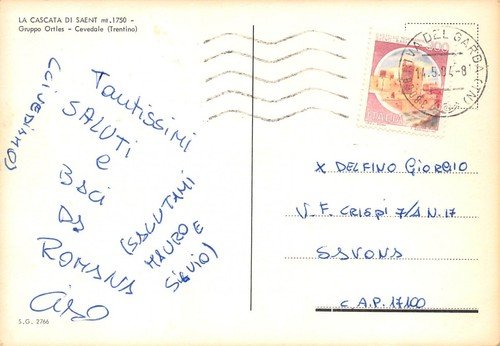 LA CASCATA DI SAENT mt. 1750 -
Gruppo Ortles - Cevedale (Trentino)
Tantissimi
SALUTI
e
BACI
DA
ROMANA
CIAO
(CI VEDIAMO)
(SALUTAMI
MAURO E
SILVIO)
S.G. 2766
RIVA DEL GARDA (TN)
14.5.84-8
ITALIA
X DELFINO GIORGIO
V. F. CRISPI 7/A N. 17
SAVONA
C.A.P. 17100